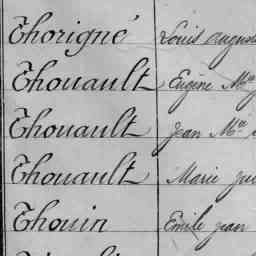 Thorigné Louis August
Thouault Eugène Mie
Thouault Jean Mie
Thouault Marie
Thouin Emile Jean